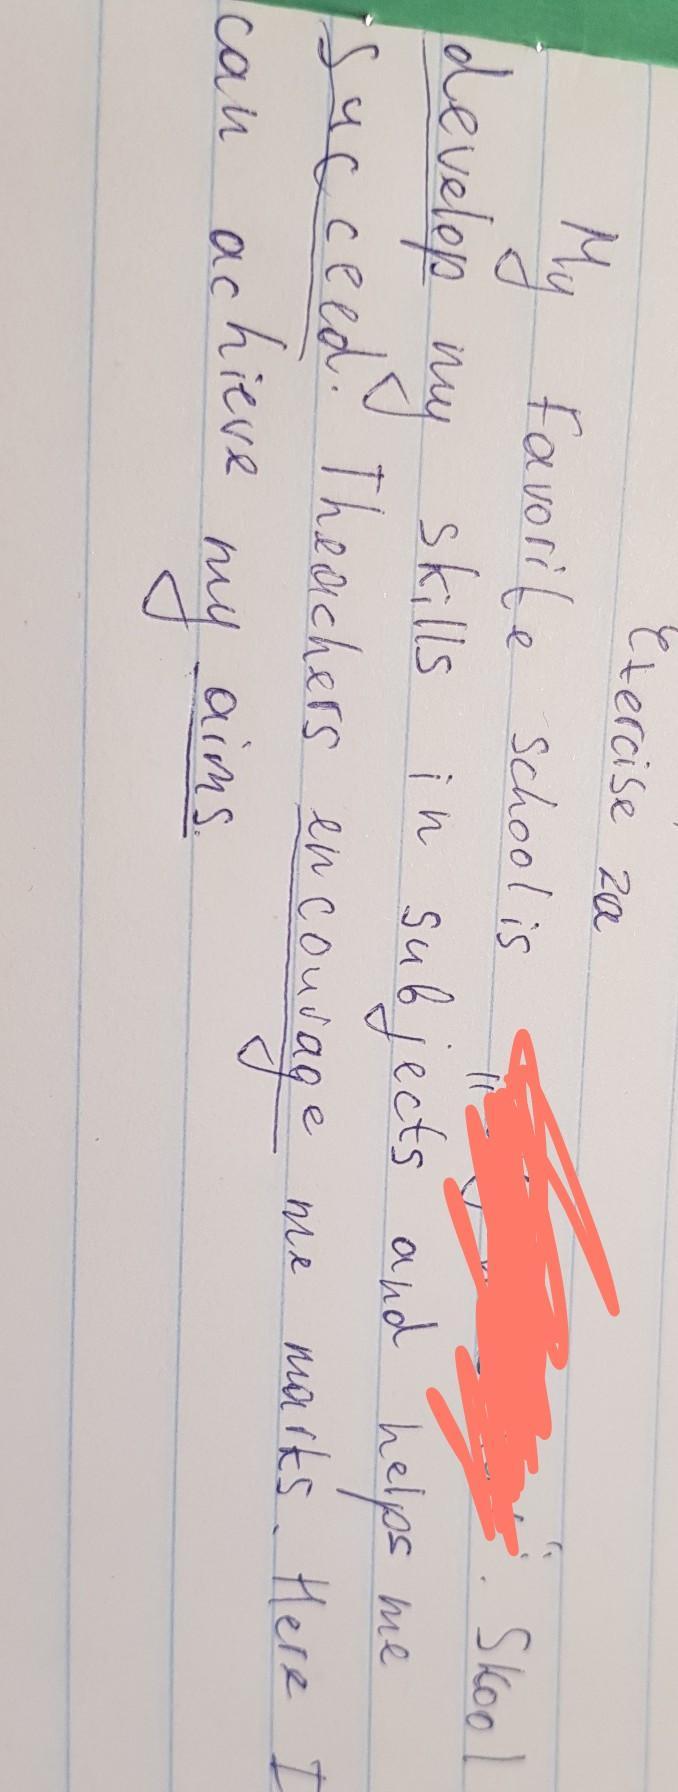 Exercise 2a
My favorite school is " ". Skool
develop my skills in subjects and helps me
succeed. Theachers encourage me marks. Here I
can achieve my aims.